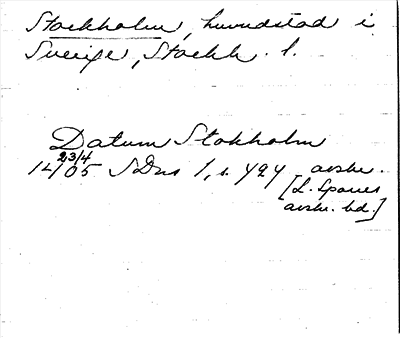 Stockholm, huvudstad i
Sverige, Stockh. l.
Datum Stokholm
23/4
14/05 SDns 1, s. 494 avskr.
[L. Sparres
avskr. bd.]